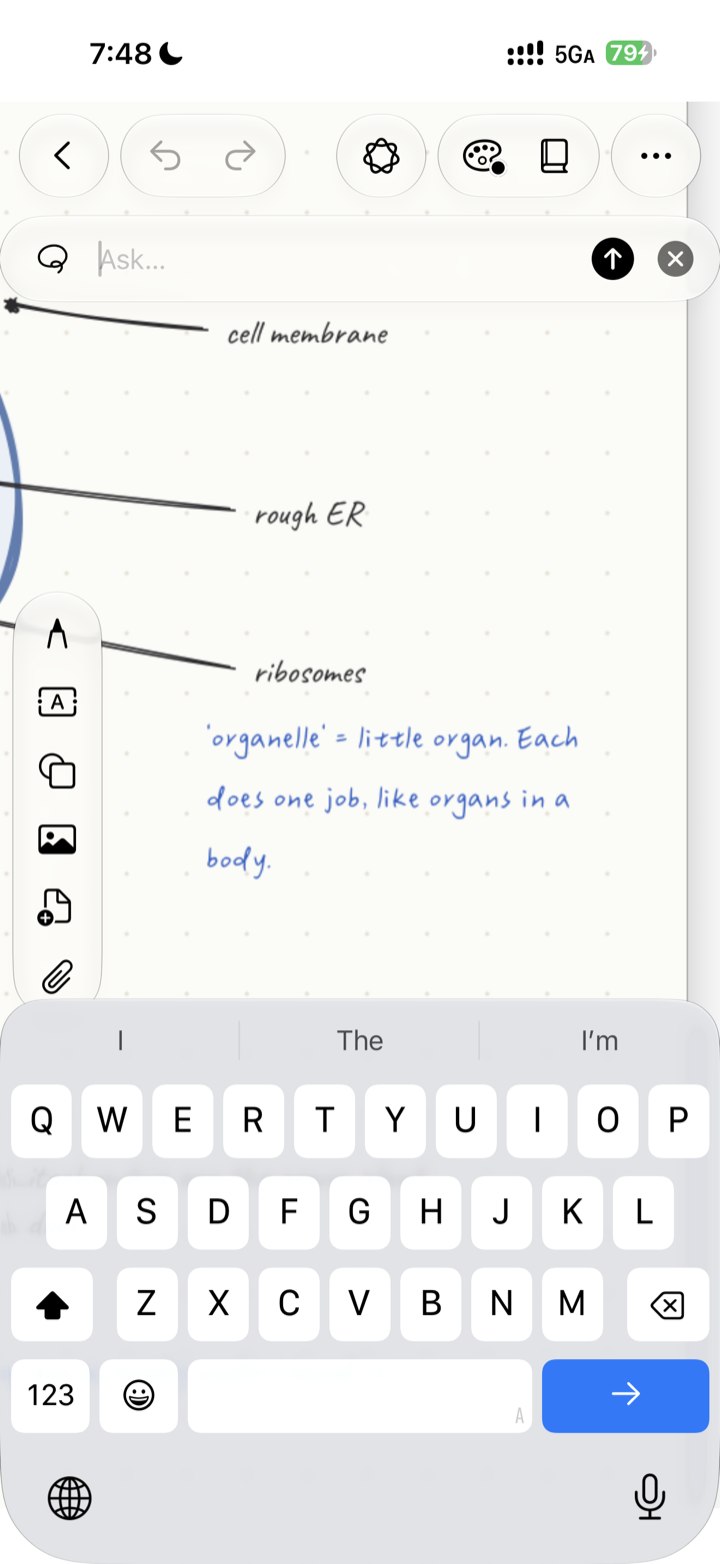 7:48
5GA 79
Ask...
cell membrane
rough ER
ribosomes
'organelle' = little organ. Each
does one job, like organs in a
body.
I The I'm
Q W E R T Y U I O P
A S D F G H J K L
Z X C V B N M
123 A